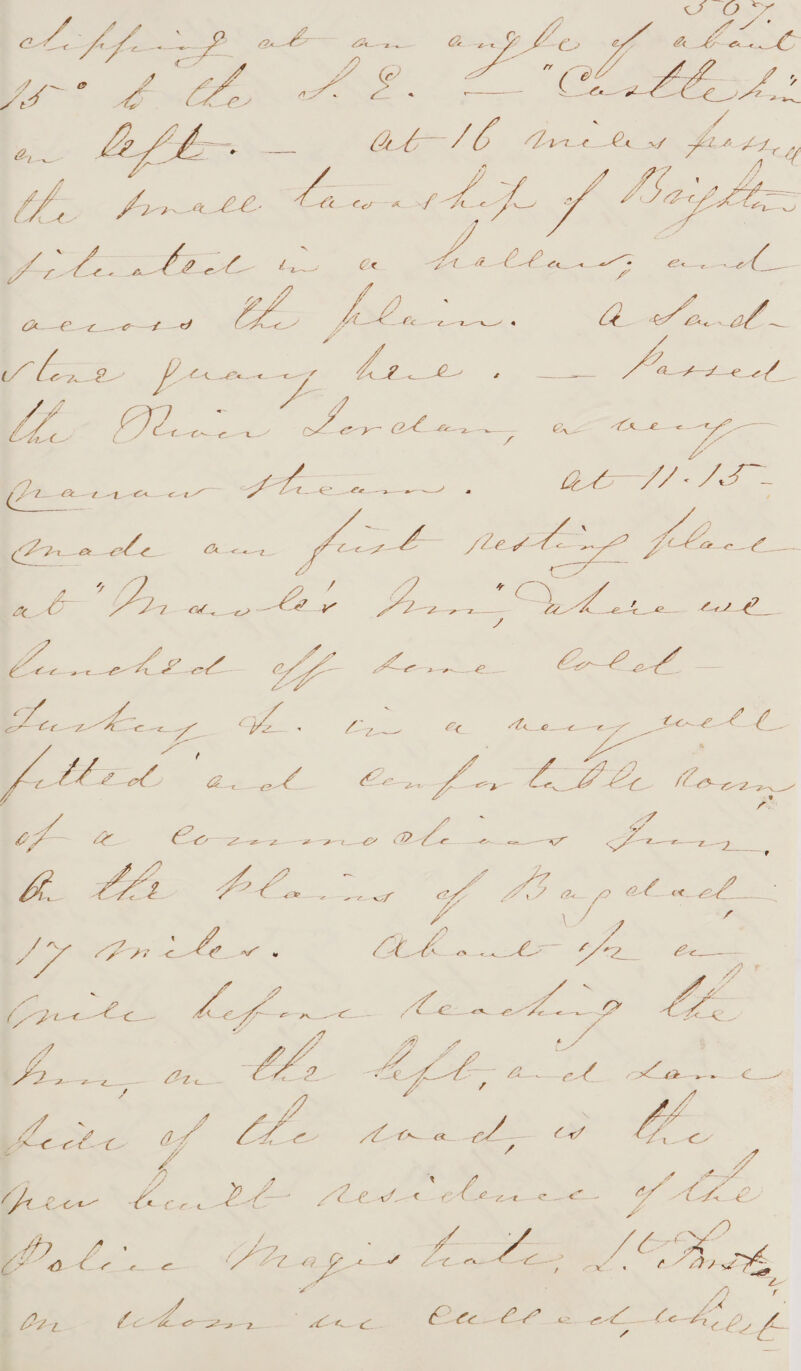 507.
dipping at an angle of about
15° to the S. E. — "Castle Inn"
on left. — At 16 miles passed
the small township of Brighton
situated in a hollow; and
across the plain. A Sand-
stone quarry here. — Passed
the River Jordan, a very
narrow stream. At 11.15 -
made our first resting place
at "Mawle's Inn", where we
lunched off some Cold -
Turkey &c. in a very well
fitted and comfortable room
of a commodious Inn.
On the Plains of Bagdad
17 miles. About 1/2 a
mile before reaching the
Inn, on the left, and same
side of the road, is the
new built residence of the
Police Magistrate, Lt. Forster,
on whom we called, whilst